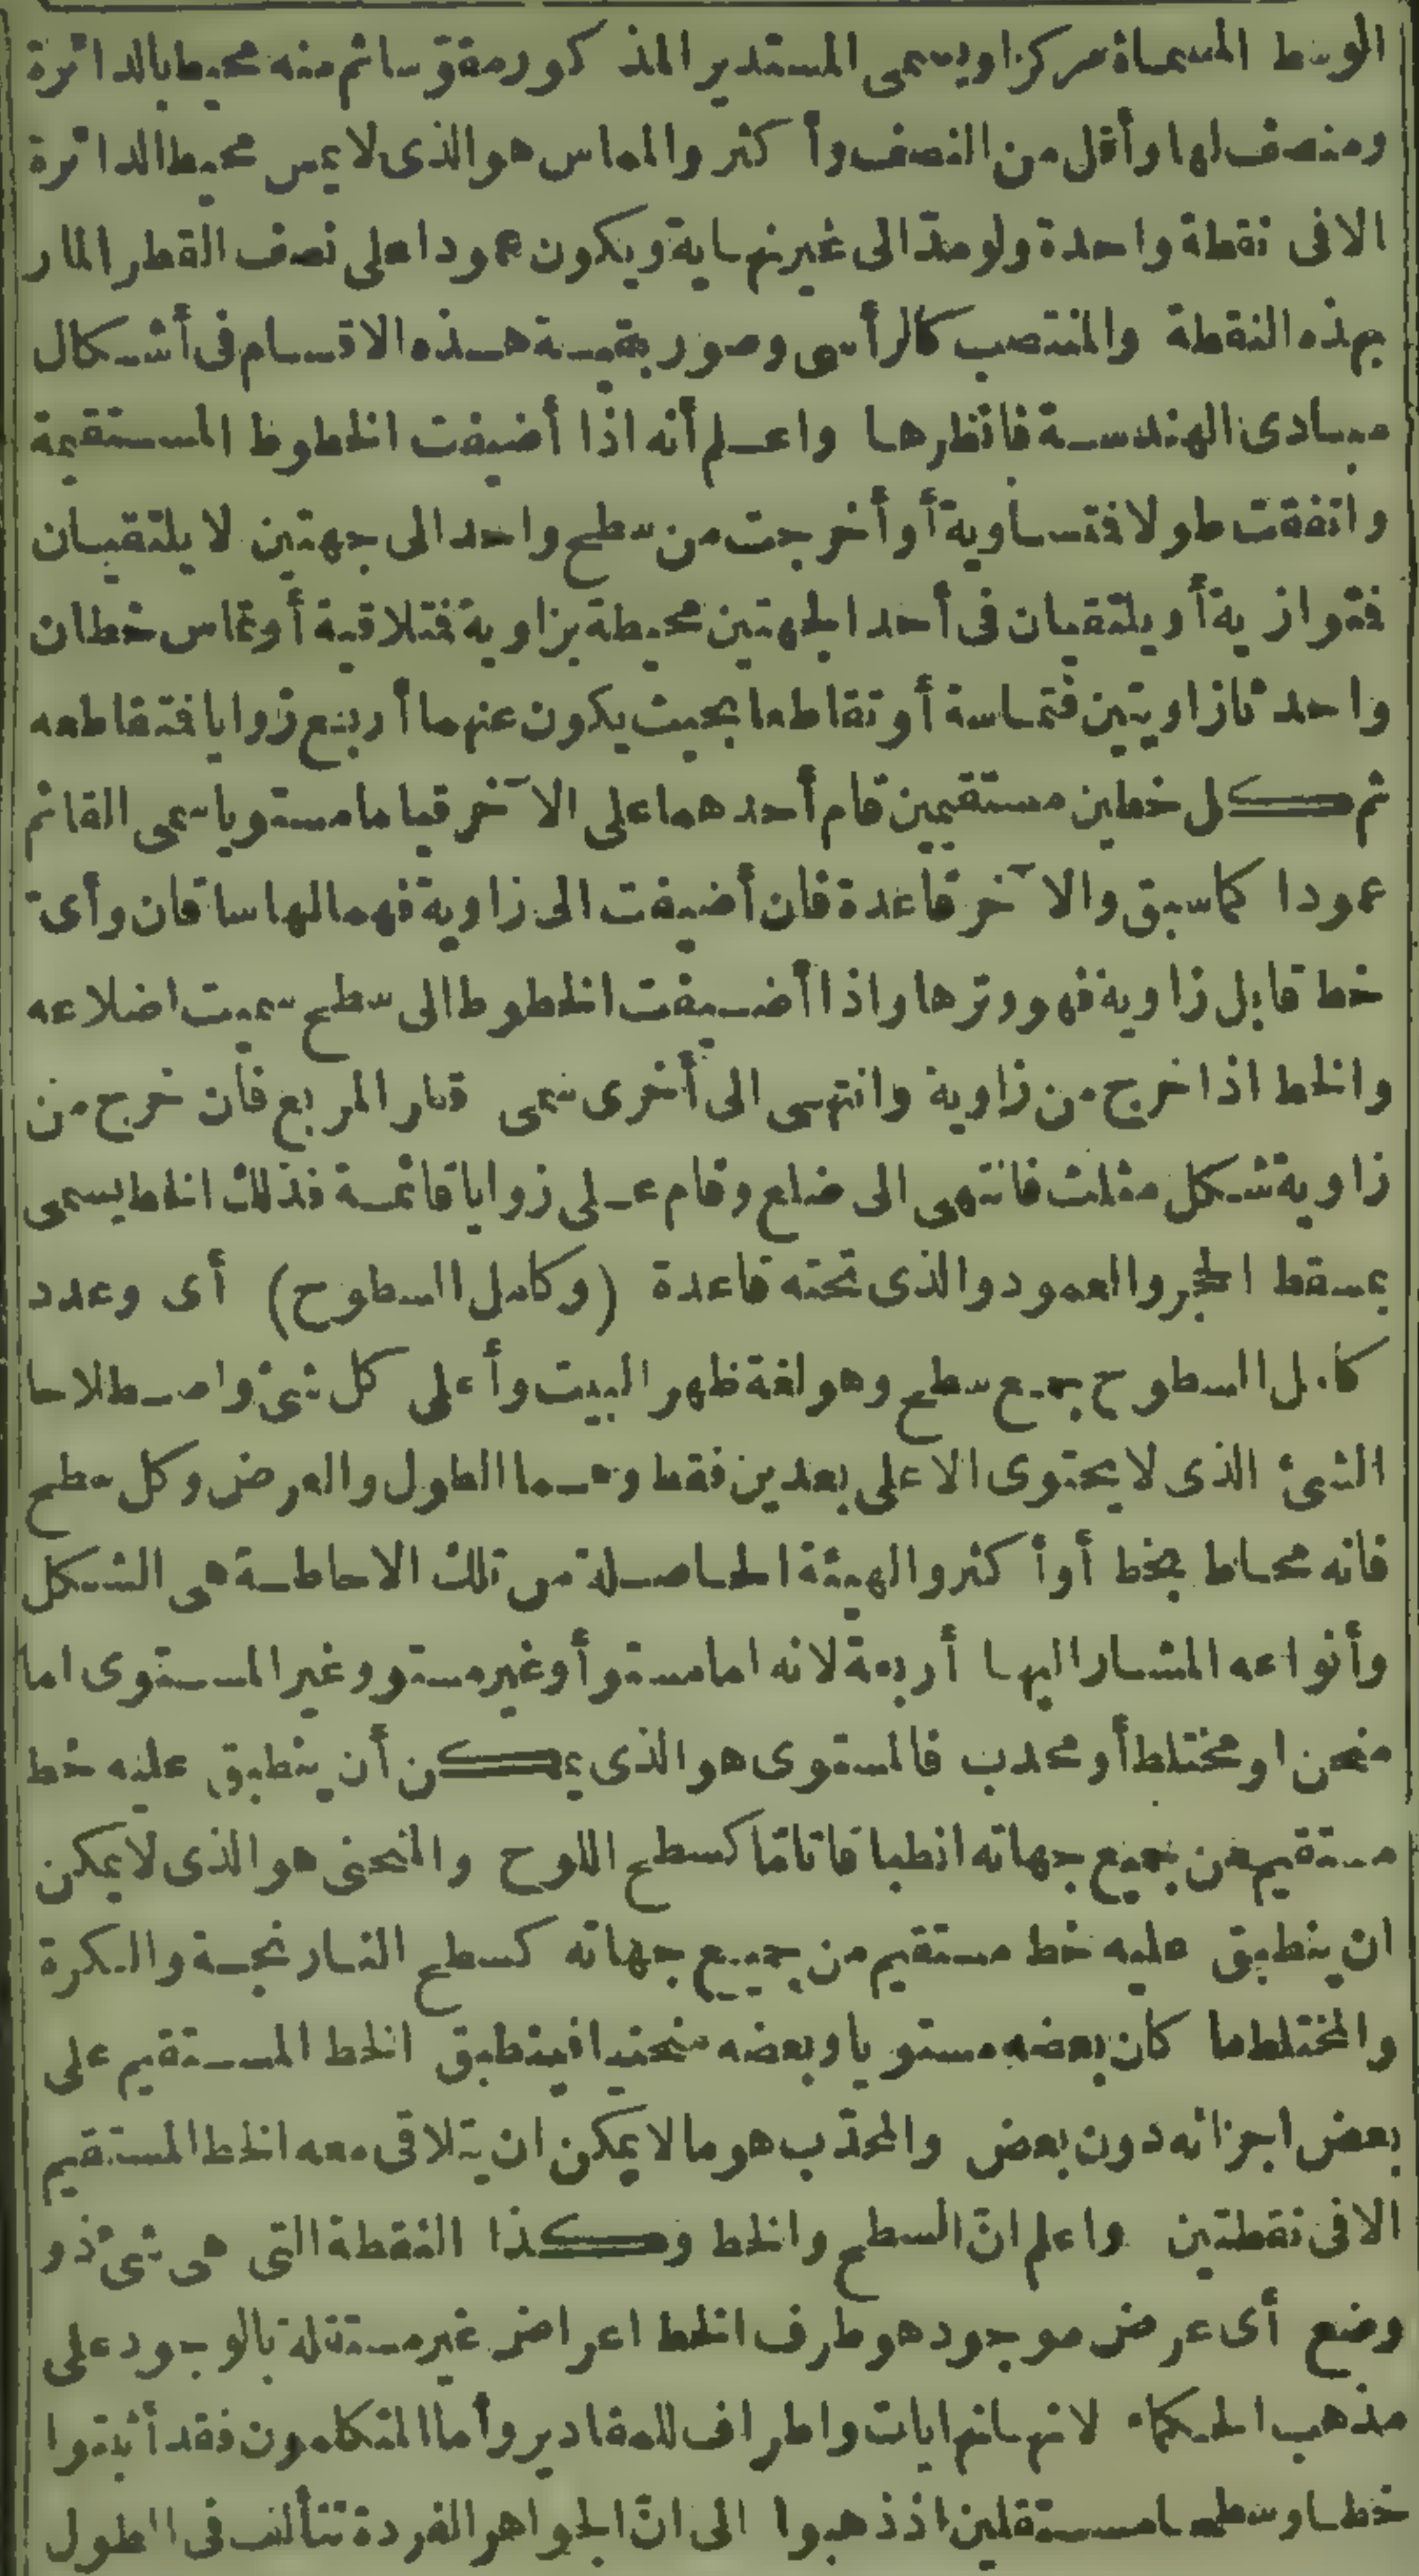 الوسط المسماة مركزا ويسمى المستدير المذكور مقوسا ثم منه محيط بالدائرة
ومنصف لها وأقل من النصف وأكثر والمماس هو الذى لا يمس محيط الدائرة
الا فى نقطة واحدة ولو مدّ الى غير نهاية ويكون عمودا على نصف القطر المار
بهذه النقطة والمنتصب كالرأسى وصور بقية هذه الاقسام فى أشكال
مبادى الهندسة فانظرها واعلم أنه اذا أضيفت الخطوط المستقيمة
واتفقت طولا فتساوية أو أخرجت من سطح واحد الى جهتين لا يلتقيان
فتوازية أو يلتقيان فى أحد الجهتين محيطة بزاوية فتلاقية أو تماس خطان
واحدثا زاويتين فتماسة أو تقاطعا بحيث يكون عنهما أربع زوايا فتقاطعه
ثم كل خطين مستقيمين قام أحدهما على الآخر قياما مستويا سمى القائم
عمودا كما سبق والآخر قاعدة فان أضيفت الى زاوية فهما لها ساقان وأىّ
خط قابل زاوية فهو وترها واذا أضيفت الخطوط الى سطح سميت اضلاعه
والخط اذا خرج من زاوية وانتهى الى أخرى سمى قطر المربع فان خرج من
زاوية شكل مثلث فانتهى الى ضلع وقام على زوايا قائمة فذلك الخط يسمى
بمسقط الحجر والعمود والذى تحته قاعدة (وكامل السطوح) أى وعدد
كامل السطوح جمع سطح وهو لغة ظهر البيت وأعلى كل شئ واصطلاحا
الشئ الذى لا يحتوى الا على بعدين فقط وهما الطول والعرض وكل سطح
فانه محاط بخط أو أكثر والهيئة الحاصلة من تلك الاحاطة هى الشكل
وأنواعه المشار اليها أربعة لانه اما مستو أو غير مستو وغير المستوى اما
منحن او مختلط أو محدب فالمستوى هو الذى يمكن أن ينطبق عليه خط
مستقيم من جميع جهاته انطباقا تامّا كسطح اللوح والمنحنى هو الذى لا يمكن
ان ينطبق عليه خط مستقيم من جميع جهاته كسطح النارنجة والكرة
والمختلط ما كان بعضه مستويا وبعضه منحنيا فينطبق الخط المستقيم على
بعض اجزائه دون بعض والمحدّب هو ما لا يمكن ان يتلاقى معه الخط المستقيم
الا فى نقطتين واعلم انّ السطح والخط وكذا النقطة التى هى شئ ذو
وضع أى عرض موجود هو طرف الخط اعراض غير مستقلة بالوجود على
مذهب الحكماء لانها نهايات واطراف للمقادير وأما المتكلمون فقد أثبتوا
خطا وسطحا مستقلين اذ ذهبوا الى انّ الجواهر الفردة تتألف فى الطول